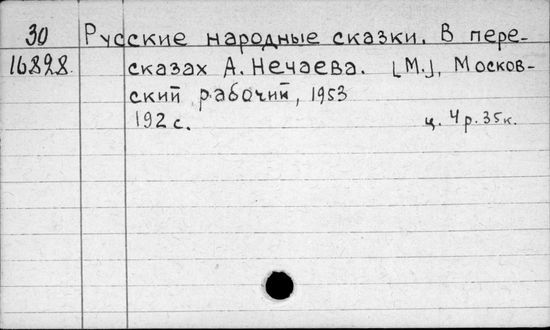 30 Русские народные сказки. В пере-
16828. сказах А. Нечаева. [М.], Москов-
ский рабочий, 1953
192 с. ц. 4 р. 35 к.